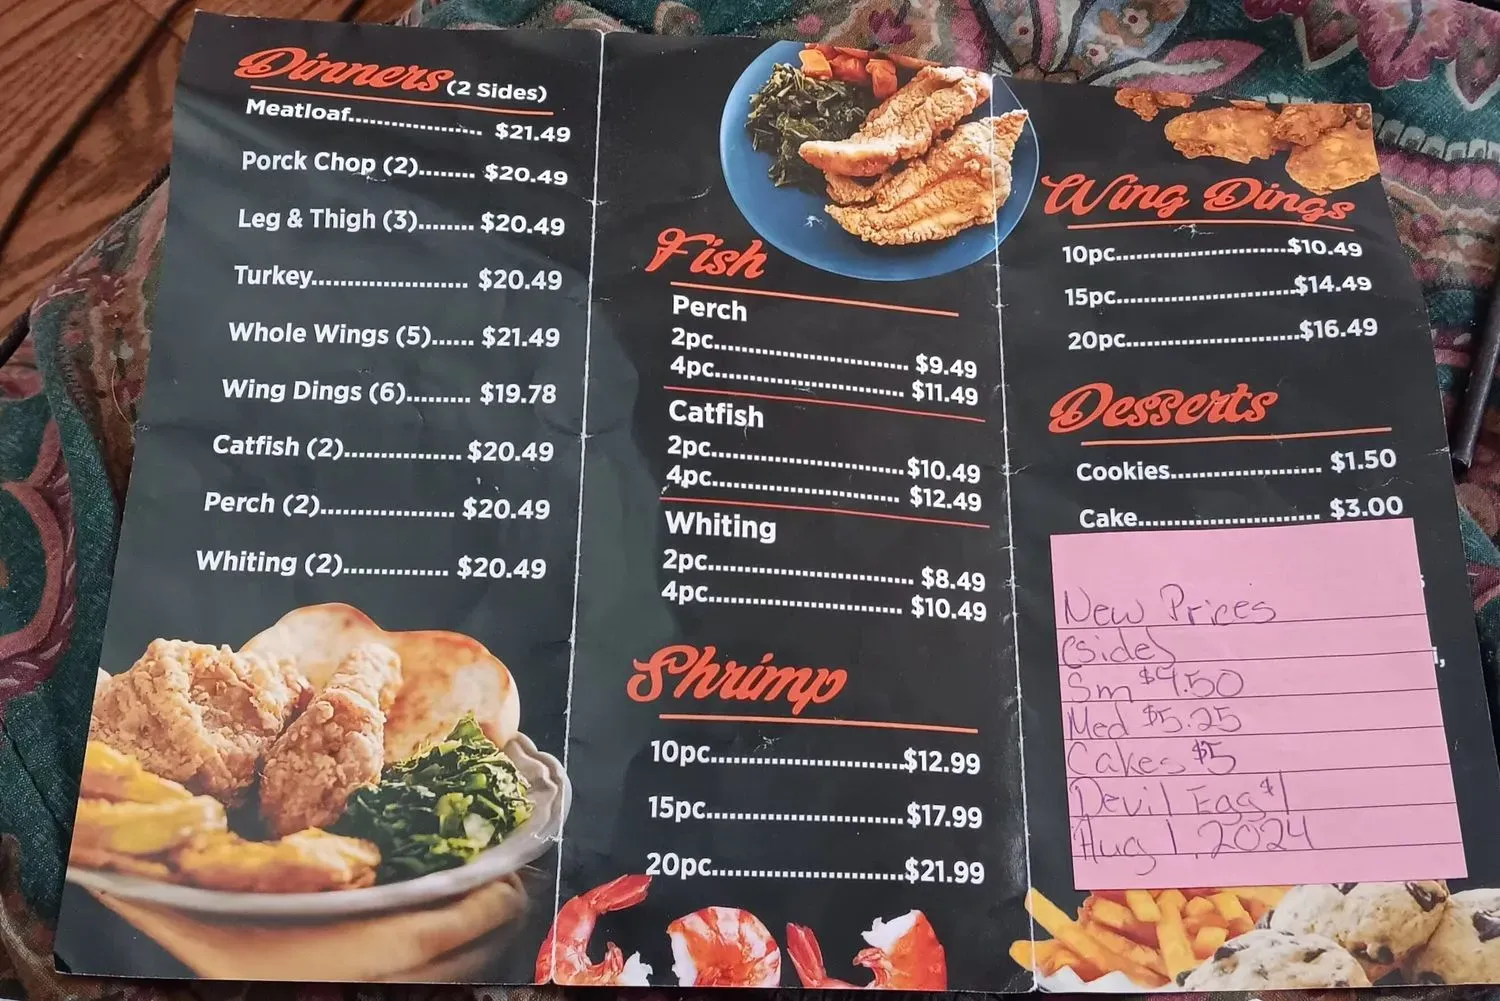 Dinners (2 Sides)
Meatloaf................... $21.49
Porck Chop (2)........ $20.49
Leg & Thigh (3)........ $20.49
Turkey...................... $20.49
Whole Wings (5)...... $21.49
Wing Dings (6)......... $19.78
Catfish (2)................ $20.49
Perch (2)................... $20.49
Whiting (2)............... $20.49
Fish
Perch
2pc............................ $9.49
4pc............................ $11.49
Catfish
2pc............................ $10.49
4pc............................ $12.49
Whiting
2pc............................ $8.49
4pc............................ $10.49
Shrimp
10pc............................$12.99
15pc............................$17.99
20pc............................$21.99
Wing Dings
10pc..........................$10.49
15pc..........................$14.49
20pc..........................$16.49
Desserts
Cookies...................... $1.50
Cake........................... $3.00
New Prices
(side)
Sm $4.50
Med $5.25
Cakes $5
Devil Egg $1
Aug 1, 2024